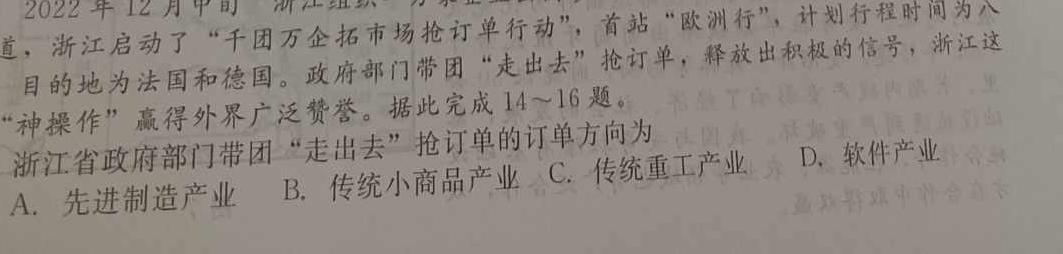 2022 年 12 月中旬 浙江组织
道，浙江启动了“千团万企拓市场抢订单行动”，首站“欧洲行”，计划行程时间为八
目的地为法国和德国。政府部门带团“走出去”抢订单，释放出积极的信号，浙江这
“神操作”赢得外界广泛赞誉。据此完成 14～16 题。
浙江省政府部门带团“走出去”抢订单的订单方向为
A. 先进制造产业 B. 传统小商品产业 C. 传统重工产业 D. 软件产业